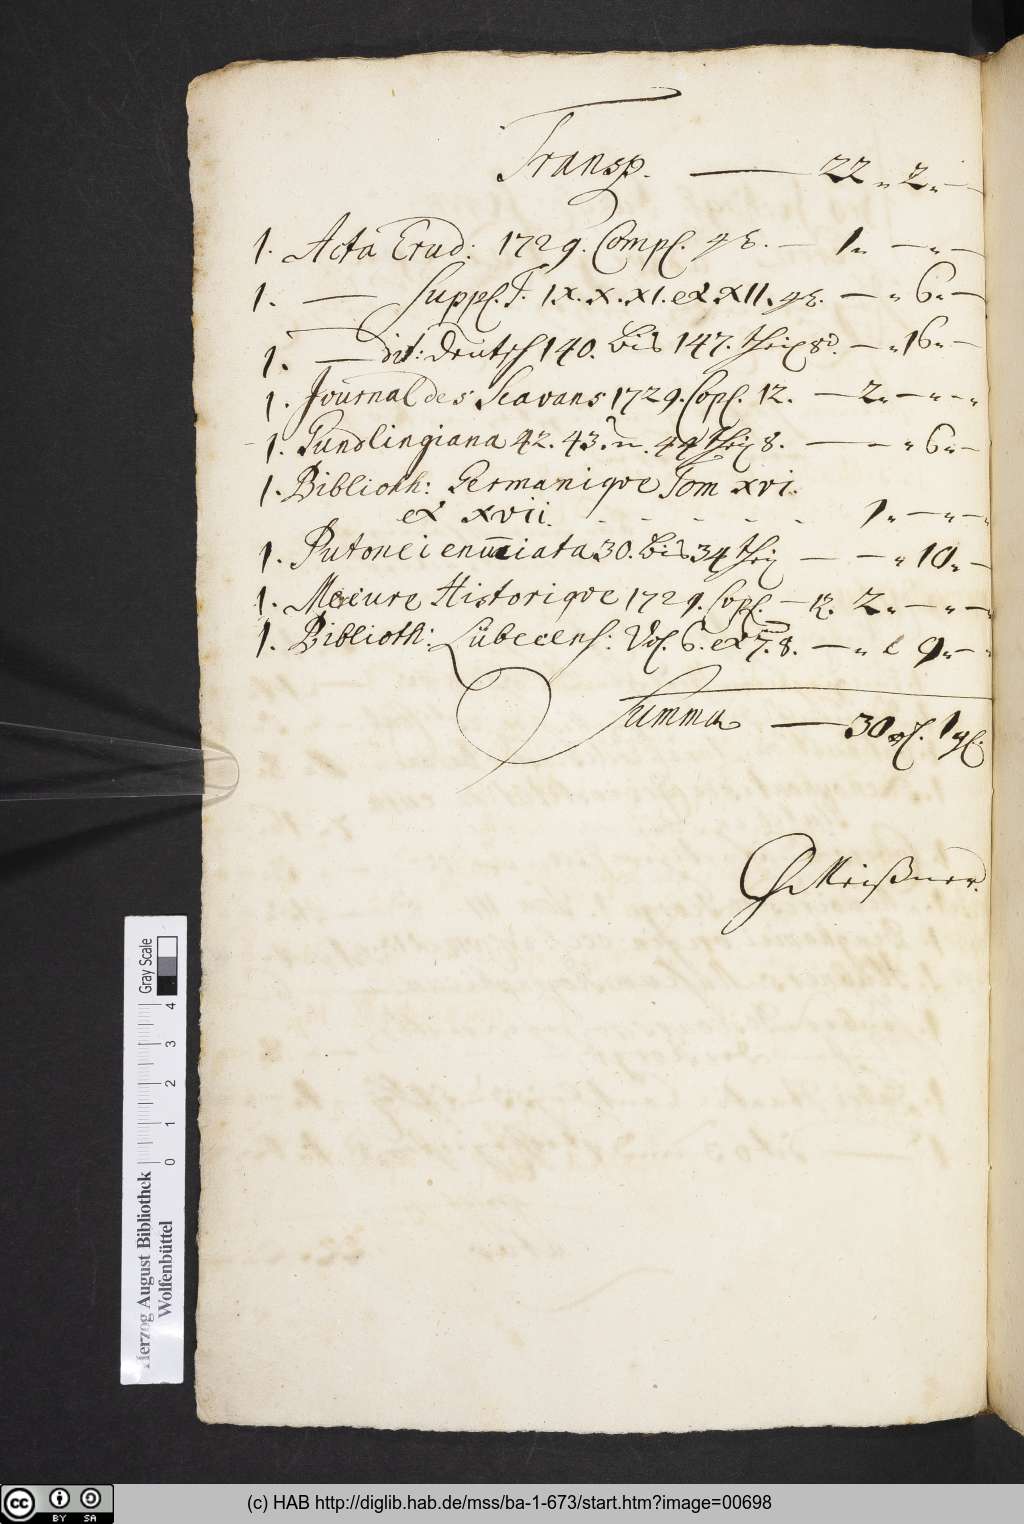 Transp. — 22 „ 2 „ —
1. Acta Erud: 1729. Compl. — 1 „ — „ —
1. — Suppl. T. IX. X. XI. et XII. — „ 6 „ —
1. — dit: deutsch 140. bis 147. — „ 16 „ —
1. Journal des Scavans 1729. Copl. 12. — 2 „ — „ — „
1. Gundlingiana 42. 43. u. 44 8. — — „ 6 „ —
1. Biblioth: Germanique Tom xvi.
et xvii. - - - - - - 1 „ — „ — „
1. enunciata 30. bis 34 — — „ 10 „ —
1. Mercure Historique 1729. Copl. — 12. 2 „ — „ — „
1. Biblioth: Lübecens: Vol. 6. et 7. 8. — „ 9 „ — „
Summa — 30 1 gl.
Meißner.
Gray Scale
0 1 2 3 4
Herzog August Bibliothek
Wolfenbüttel
cc BY SA
(c) HAB http://diglib.hab.de/mss/ba-1-673/start.htm?image=00698